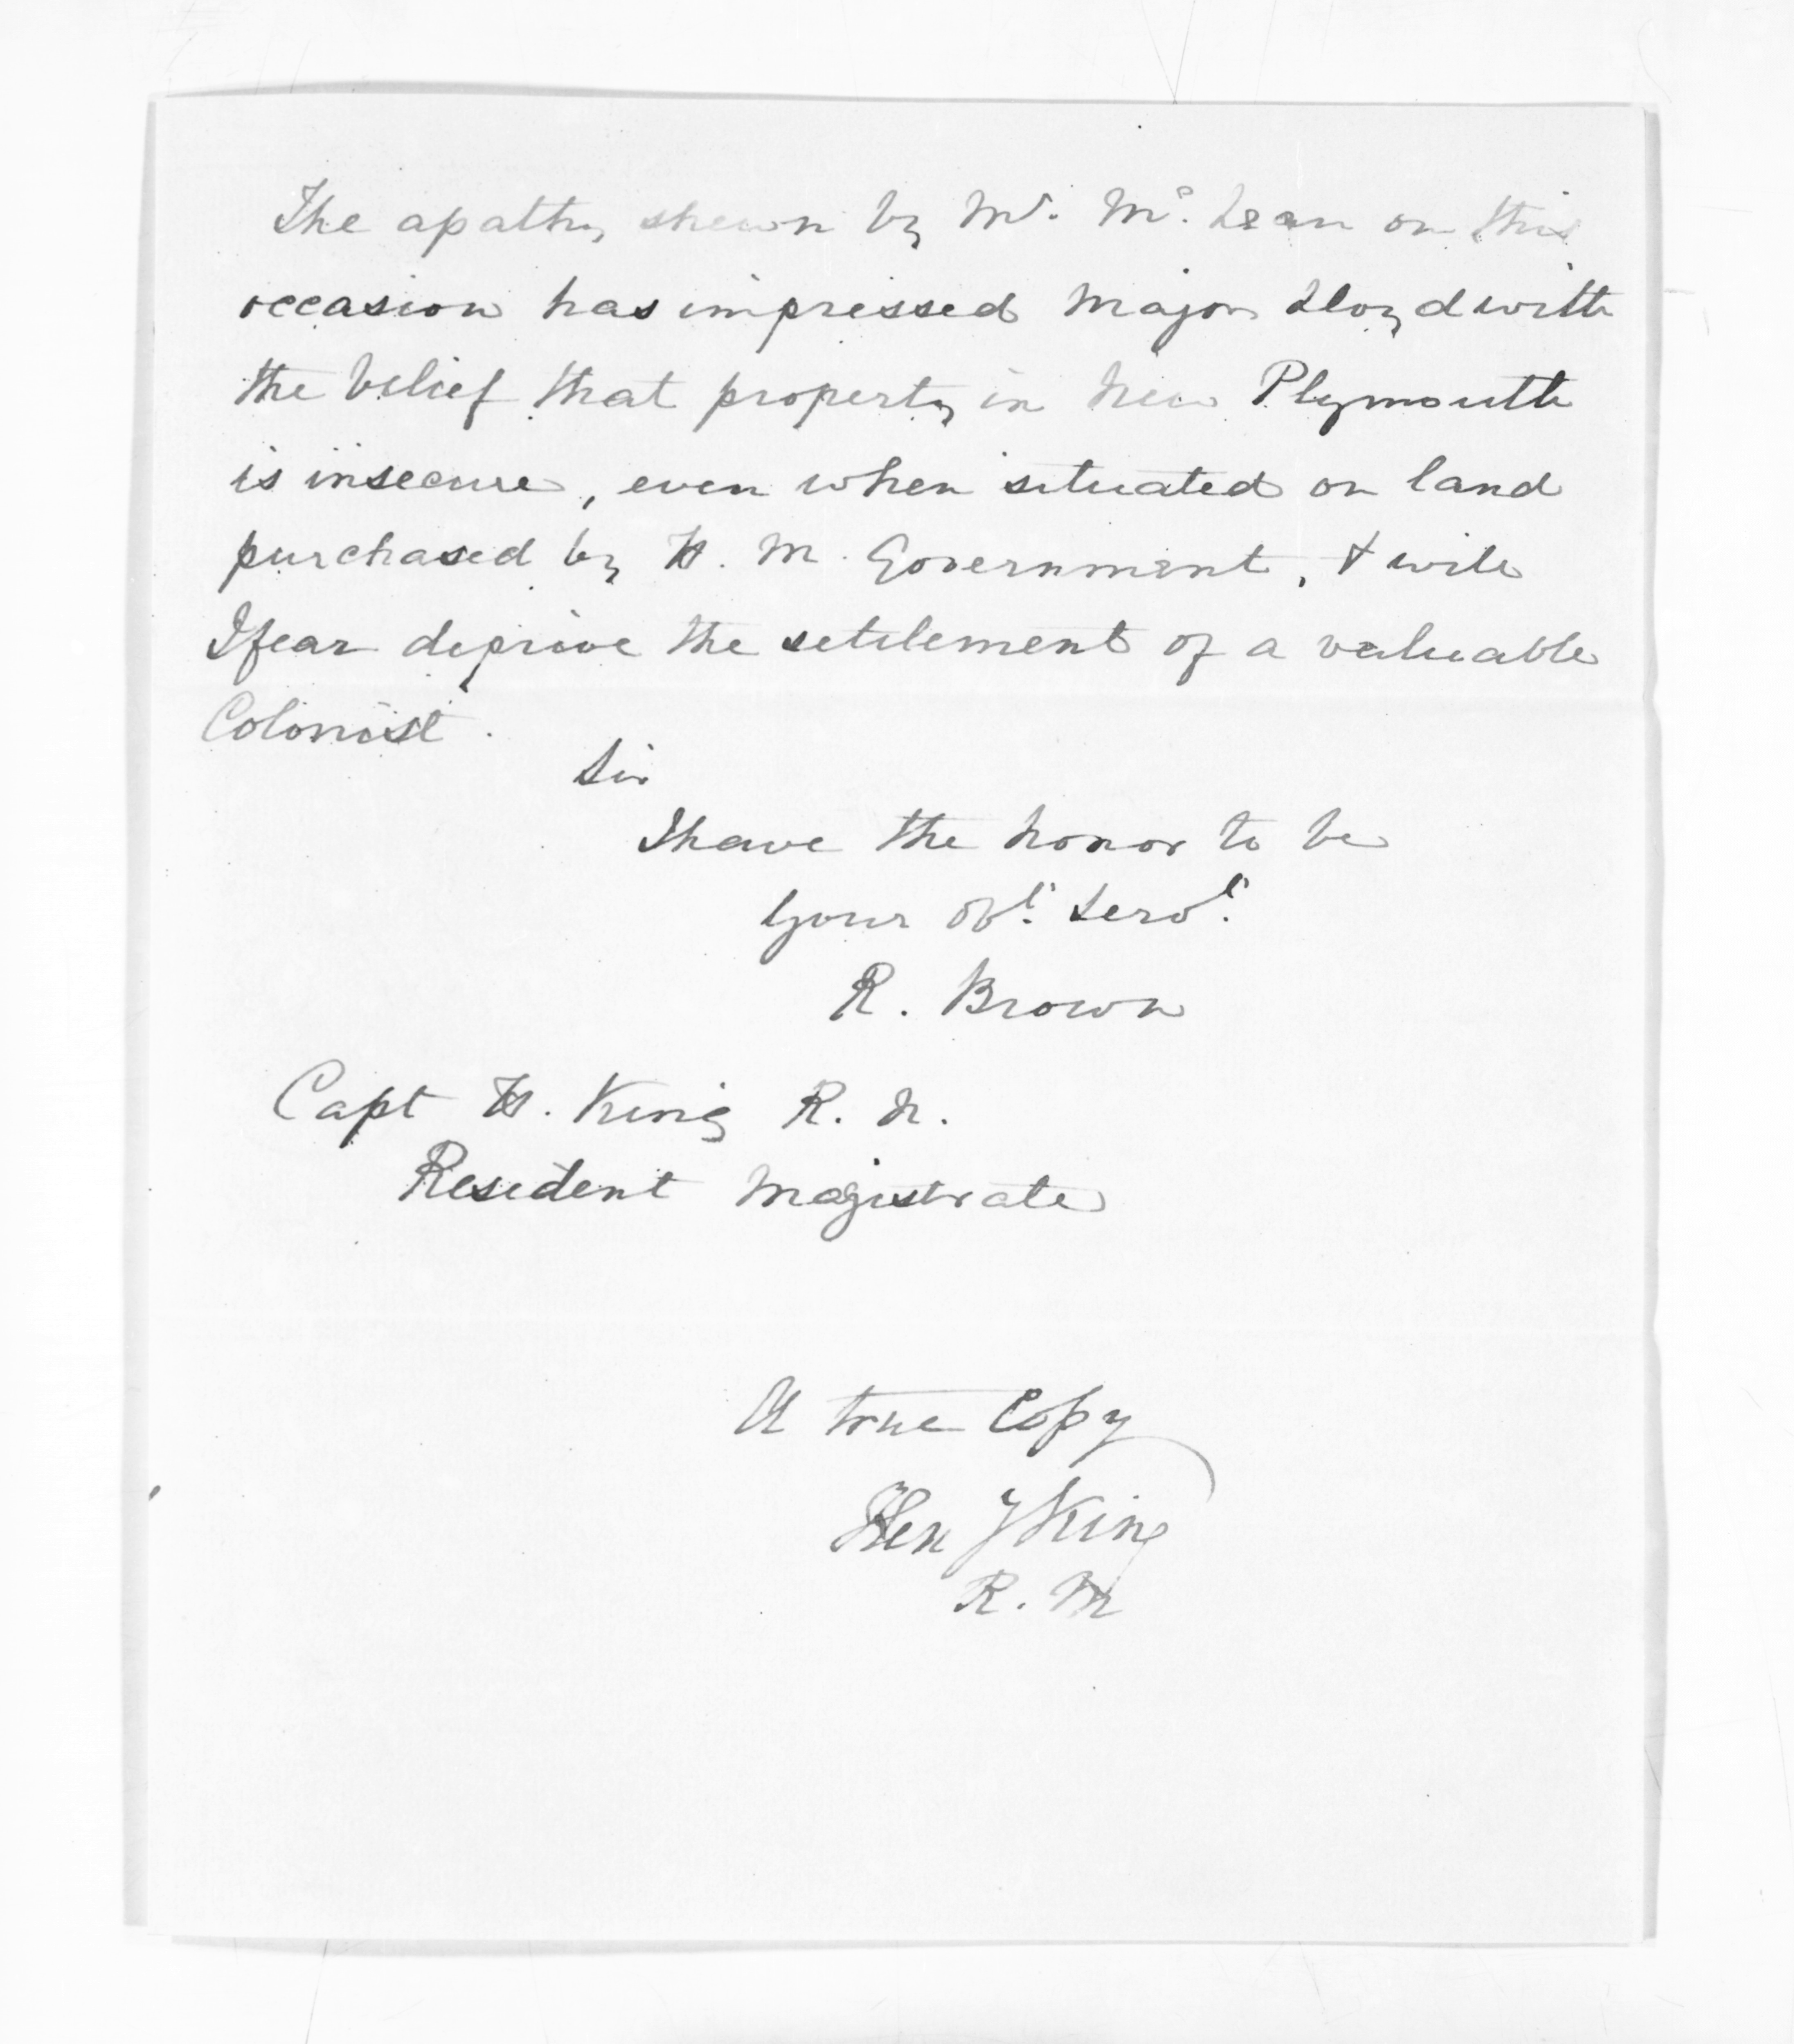 The apathy shewn by Mr. Mc. Lean on this
occasion has impressed Major Lloyd with
the belief that property in New Plymouth
is insecure, even when situated on land
purchased by H. M. Government, & will
I fear deprive the settlement of a valuable
Colonist.
Sir
I have the honor to be
Your obt. Servt.
R. Brown
Capt H. King R. N.
Resident Magistrate
A true Copy
Hen King
R. M